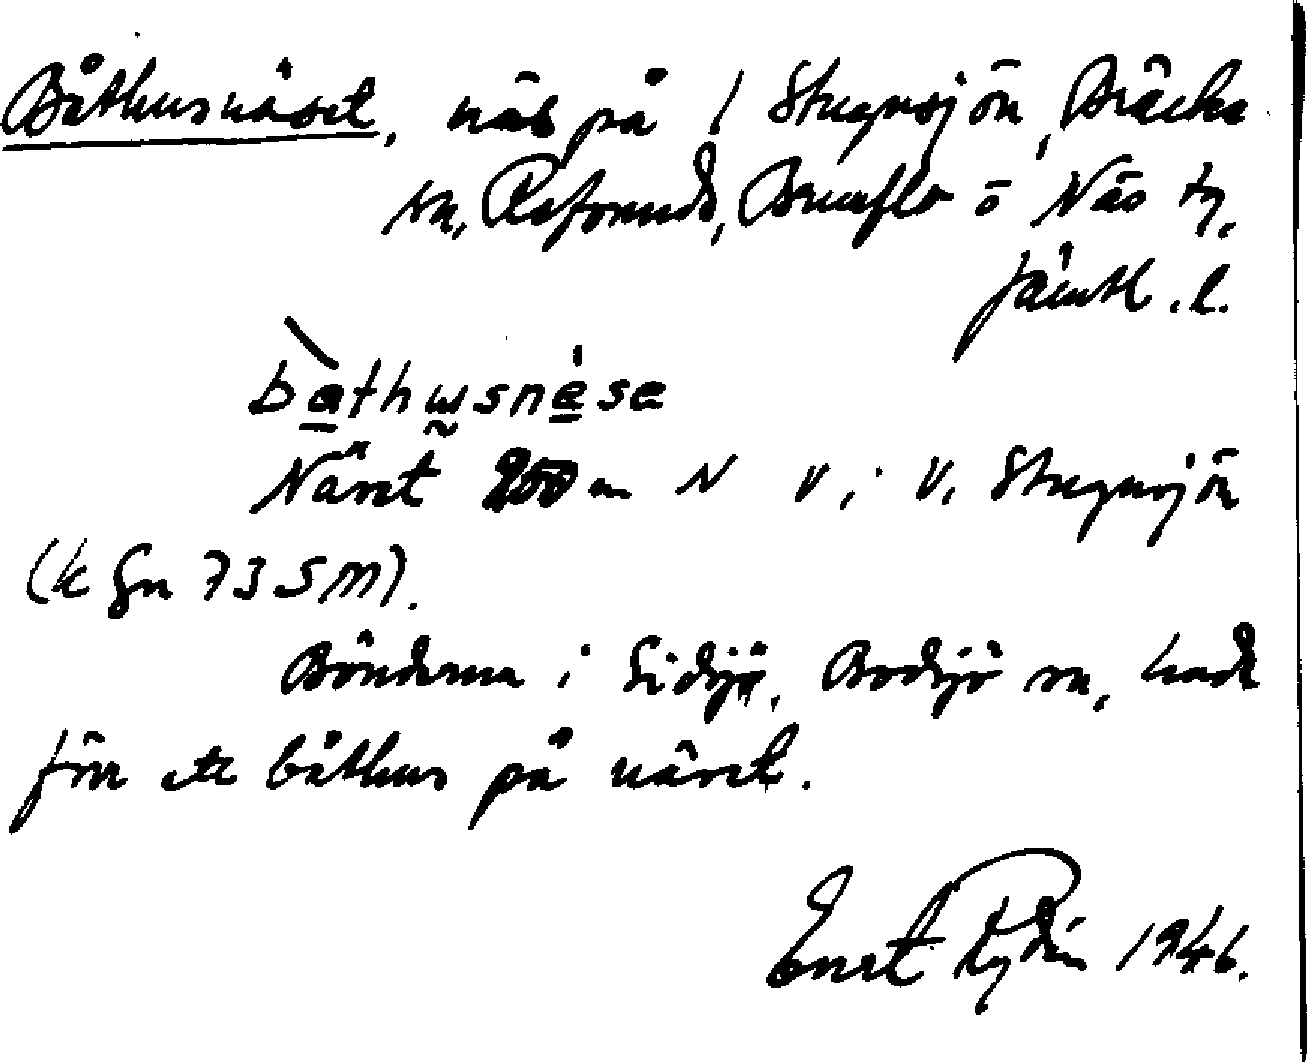 Båthusnäset, näs på / Stugusjön, Bräcke
sn, Refsunds, Brunflo o Näs tg,
Jämtl. l.
båthusnèse
Näset 200 m N V i V. Stugusjön
(k gn 735 M).
Bönderna i Sidsjö, Bodsjö sn, hade
förr ett båthus på näset.
Ernst Rydin 1946.